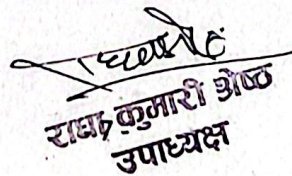 राधा कुमारी श्रेष्ठ
उपाध्यक्ष